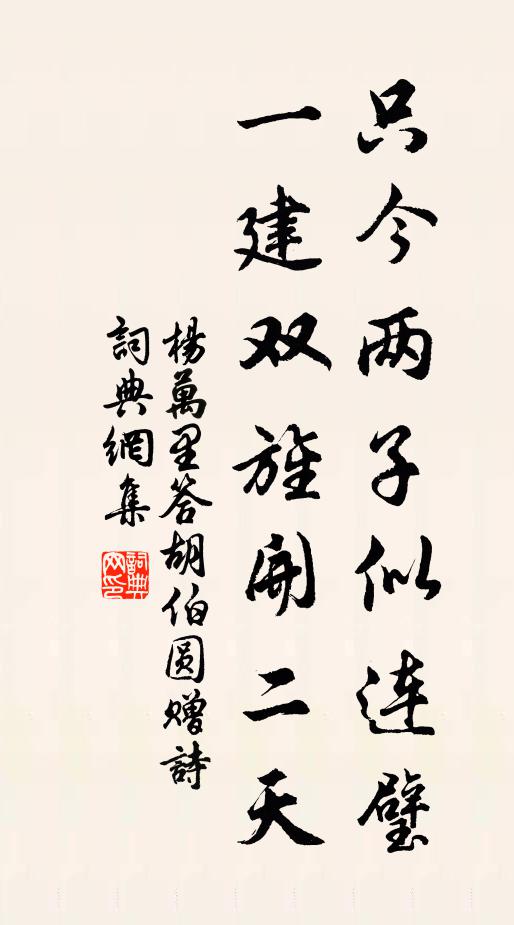 只今两子似连璧
一建双旌开二天
楊萬里答胡伯圆赠詩
詞典網集
詞典网印